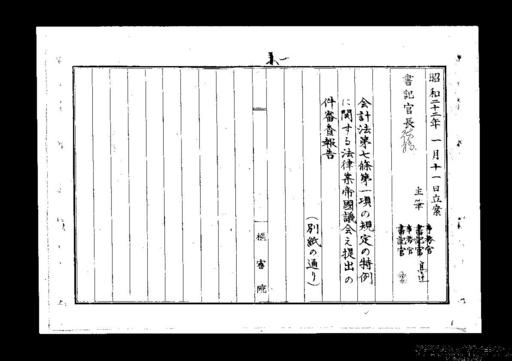 昭和二十二年一月十一日立案
書記官長
主筆
事務官
書記官
事務官
書記官
会計法第七條第一項の規定の特例
に関する法律案帝國議会え提出の
件審査報告
(別紙の通り)
樞密院